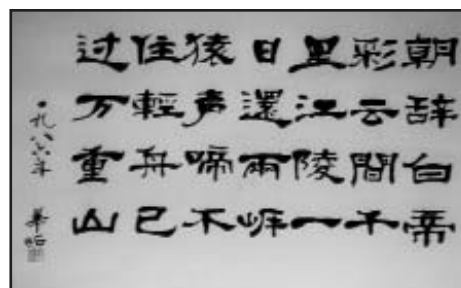 朝辞白帝
彩云間千
里江陵一
日還兩岸
猿声啼不
住輕舟已
过万重山
一九八六年